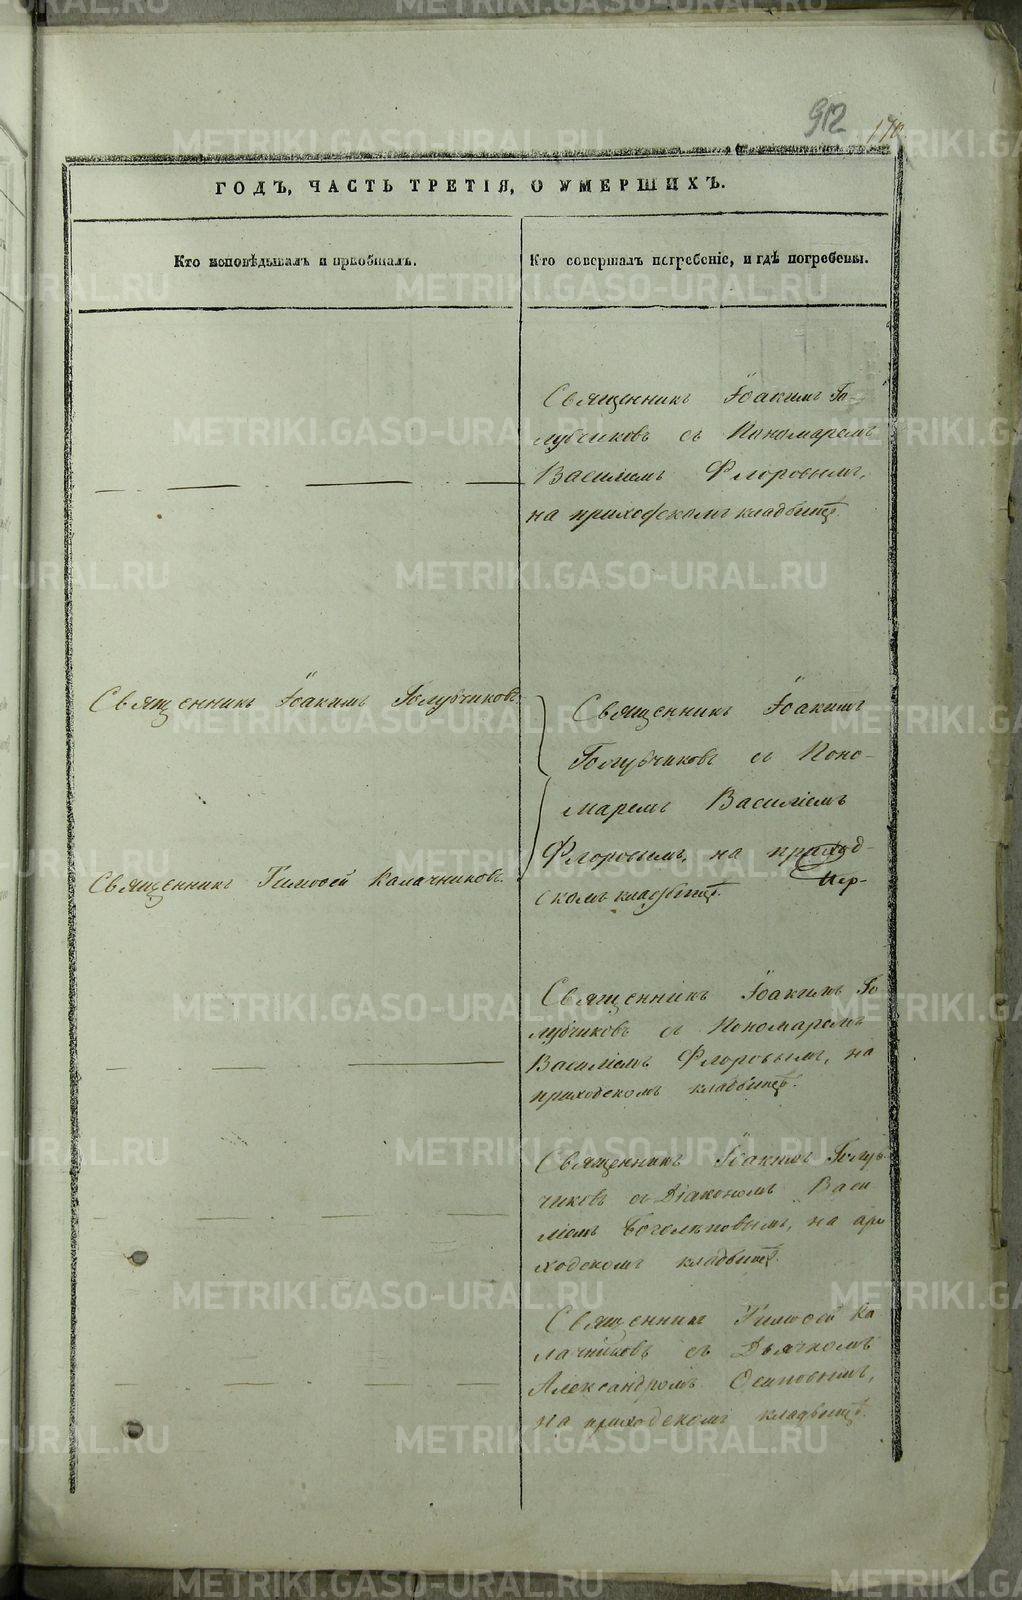 912
170
ГОДЪ, ЧАСТЬ ТРЕТІЯ, О УМЕРШИХЪ.
Кто исповѣдывалъ и пріобщалъ.
Кто совершалъ погребеніе, и гдѣ погребены.
Священникъ Іоакимъ Го-
лубчиковъ съ Пономаремъ
Василіемъ Флоровымъ,
на приходскомъ кладбищѣ.
Священникъ Іоакимъ Голубчиковъ.
Священникъ Тимоѳей Калачниковъ.
Священникъ Іоакимъ
Голубчиковъ съ Поно-
маремъ Василіемъ
Флоровымъ, на приход-
скомъ кладбищѣ.
Священникъ Іоакимъ Го
лубчиковъ съ Пономаремъ
Василіемъ Флоровымъ, на
приходскомъ кладбищѣ.
Священникъ Іоакимъ Голуб
чиковъ съ Діакономъ Васи
ліемъ Боголѣповымъ, на при
ходскомъ кладбищѣ.
Священникъ Тимоѳей Ка
лачниковъ съ Дьячкомъ
Александромъ Осиповымъ,
на приходскомъ кладбищѣ.
METRIKI.GASO-URAL.RU